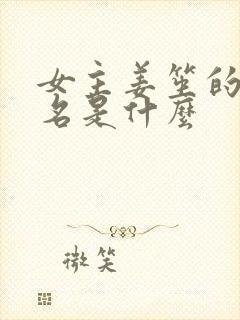 女主姜笙的
名是什麼
微笑